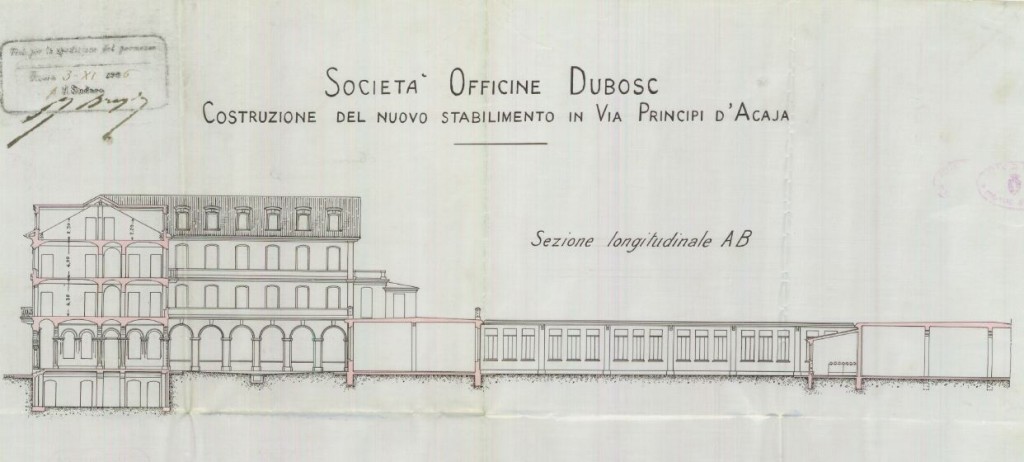 Visto per la spedizione del permesso
3-XI
Il Sindaco
SOCIETÀ OFFICINE DUBOSC
COSTRUZIONE DEL NUOVO STABILIMENTO IN VIA PRINCIPI D'ACAJA
Sezione longitudinale AB